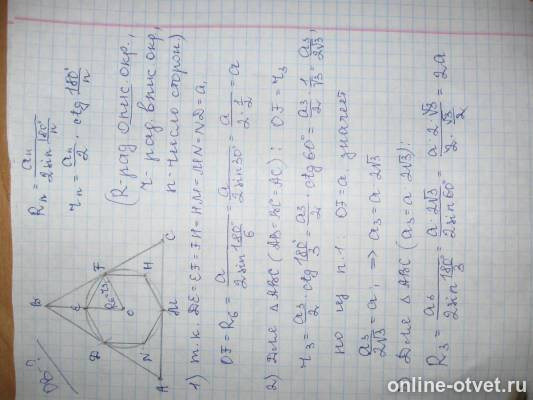 До?
B
E
D
F
R₆=r₃
O
N
H
A
M
C
Rₙ = aₙ / (2 sin 180°/n)
rₙ = aₙ/2 · ctg 180°/n
(R рад опис окр.,
r - рад. впис окр,
n - число сторон)
1) т.к. DE = EF = FH = HM = MN = ND = a,
OF = R₆ = a / (2 sin 180°/6) = a / (2 sin 30°) = a / (2 · 1/2) = a
2) Для △ ABC (AB = BC = AC) : OF = r₃
r₃ = a₃/2 · ctg 180°/3 = a₃/2 · ctg 60° = a₃/2 · 1/√3 = a₃/2√3
но из п.1 : OF = a значет
a₃/2√3 = a ; => a₃ = a 2√3
Для △ ABC (a₃ = a 2√3) :
R₃ = a₃ / (2 sin 180°/3) = a · 2√3 / (2 sin 60°) = a · 2 · √3 / (2 · √3/2) = 2a
online-otvet.ru